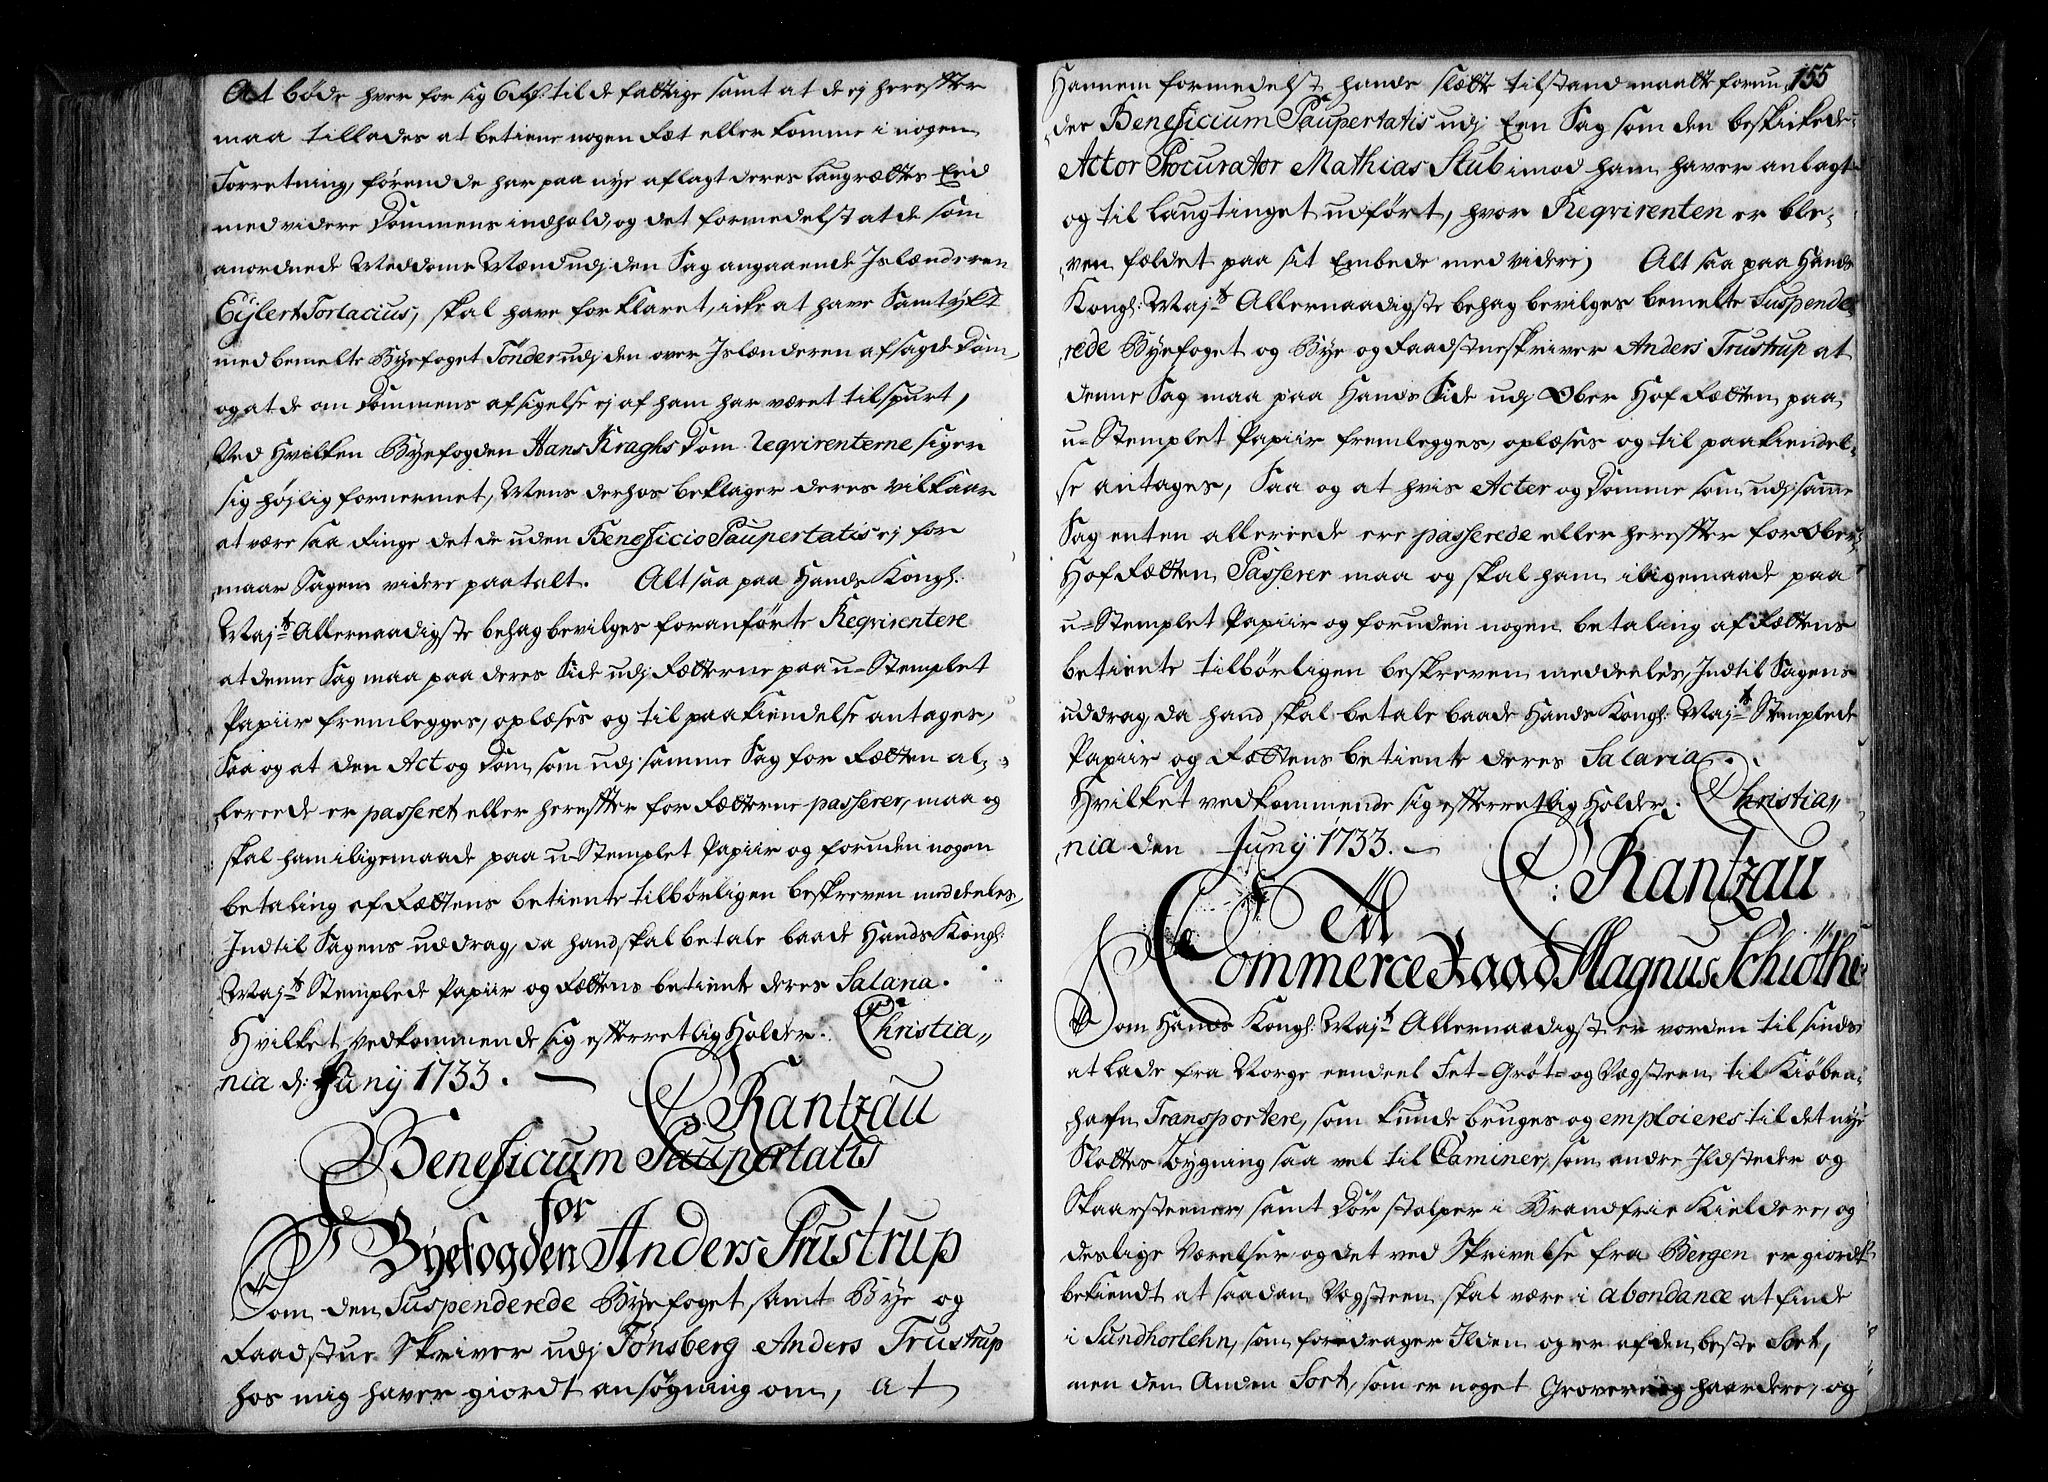 At bøde hver for sig 6 rd. til de fattige samt at de ej herefter
maa tillades at betiene nogen Ræt eller komme i nogen
Forretning, førend de har paa nye aflagt deres Laugrættes Eed
med videre Dommens indhold, og det formedelst at de som
anordnede Meddoms Mænd udj den Sag angaaende Islænderen
Eylert Torlacius, skal have forklaret, icke at have Samtykt
med bemelte Byefoget Tønder udj den over Islænderen afsagde Dom,
og at de om Dommens afsigelse ej af ham har været tilspurt,
Ved Hvilken Byefogden Hans Kraghs Dom Reqvirenterne siger
sig højlig fornermet, Mens derhos beklager deres vilkaar
at være saa Ringe det de uden Beneficio Paupertatis ej for
maar Sagen videre paatalt. Alt saa paa Hands Kongl:
Maj.ts Allernaadigste behag bevilges foranførte Reqvirentere
at denne Sag maa paa deres Side udj Rætterne paa u-Stemplet
Papiir fremlegges, oplæses og til paakiendelse antages,
Saa og at den Act og Dom som udj samme Sag for Rætten al-
lereede er passeret eller herefter for Rætterne passerer, maa og
skal ham iligemaade paa u-Stemplet Papiir og foruden nogen
betaling af Rættens betiente tilbørligen beskreven meddeeles,
Indtil Sagens uddrag, da hand skal betale baade Hands Kongl:
Maj.ts Stemplede Papiir og Rættens betiente deres Salaria.
Hvilket vedkommende sig efterretlig Holder. Christia„
nia d: Junij 1733.
C: Rantzau
Beneficium Paupertatis
for
Byefogden Anders Trustrup
Som den Suspenderede Byefoget samt Bye og
Raadstue Skriver udj Tønsberg Anders Trustrup
hos mig haver giordt ansøgning om, at
155
Hannem formedelst hands slætte tilstand maatte forun-
des Beneficium Paupertatis udj Een Sag som den beskickede
Actor Procurator Mathias Stub imod ham haver anlagt
og til Laugtinget udført, hvor Reqvirenten er ble-
ven fældet paa sit Embede med videre, Alt saa paa Hands
Kongl: Maj.ts Allernaadigste behag bevilges bemelte Suspende-
rede Byefoget og Bye og Raadstueskriver Anders Trustrup at
denne Sag maa paa Hands Side udj Ober Hof Rætten paa
u-Stemplet Papiir fremlegges, oplæses og til paakiendel-
se antages, Saa og at hvis Acter og Domme som udj samme
Sag enten allereede ere passerede eller herefter for Ober-
Hof Rætten Passerer maa og skal ham iligemaade paa
u-Stemplet Papiir og foruden nogen betaling af Rættens
betiente tilbørligen beskreven meddeeles, Indtil Sagens
uddrag, da hand skal betale baade Hands Kongl: Maj.ts Stemplede
Papiir og Rættens betiente deres Salaria.
Hvilket vedkommende sig efterretlig Holder. Christia„
nia den Junij 1733.
C: Rantzau
Til
Commerce Raad Magnus Schiøthe
Som Hands Kongl: Maj.t Allernaadigst er vorden til sinds
at Lade fra Norge eendeel Fet- Grøt- og Vægsteen til Kiøben-
hafn Transportere, som kunde bruges og emploieres til det nye
Slottes bygning saa vel til Caminer, som andre Ildsteder og
Skaarsteener, samt Dør stolper i Brandfrie Kieldere, og
deslige Værelser og det ved Skrivelse fra Bergen er giordt
bekiendt at saadan Vægsteen skal være i abondance at finde
i Sundhorlehn, som fordrager Ilden og er af den beste Sort,
men den Anden Sort, som er noget Grovere og haardere, og